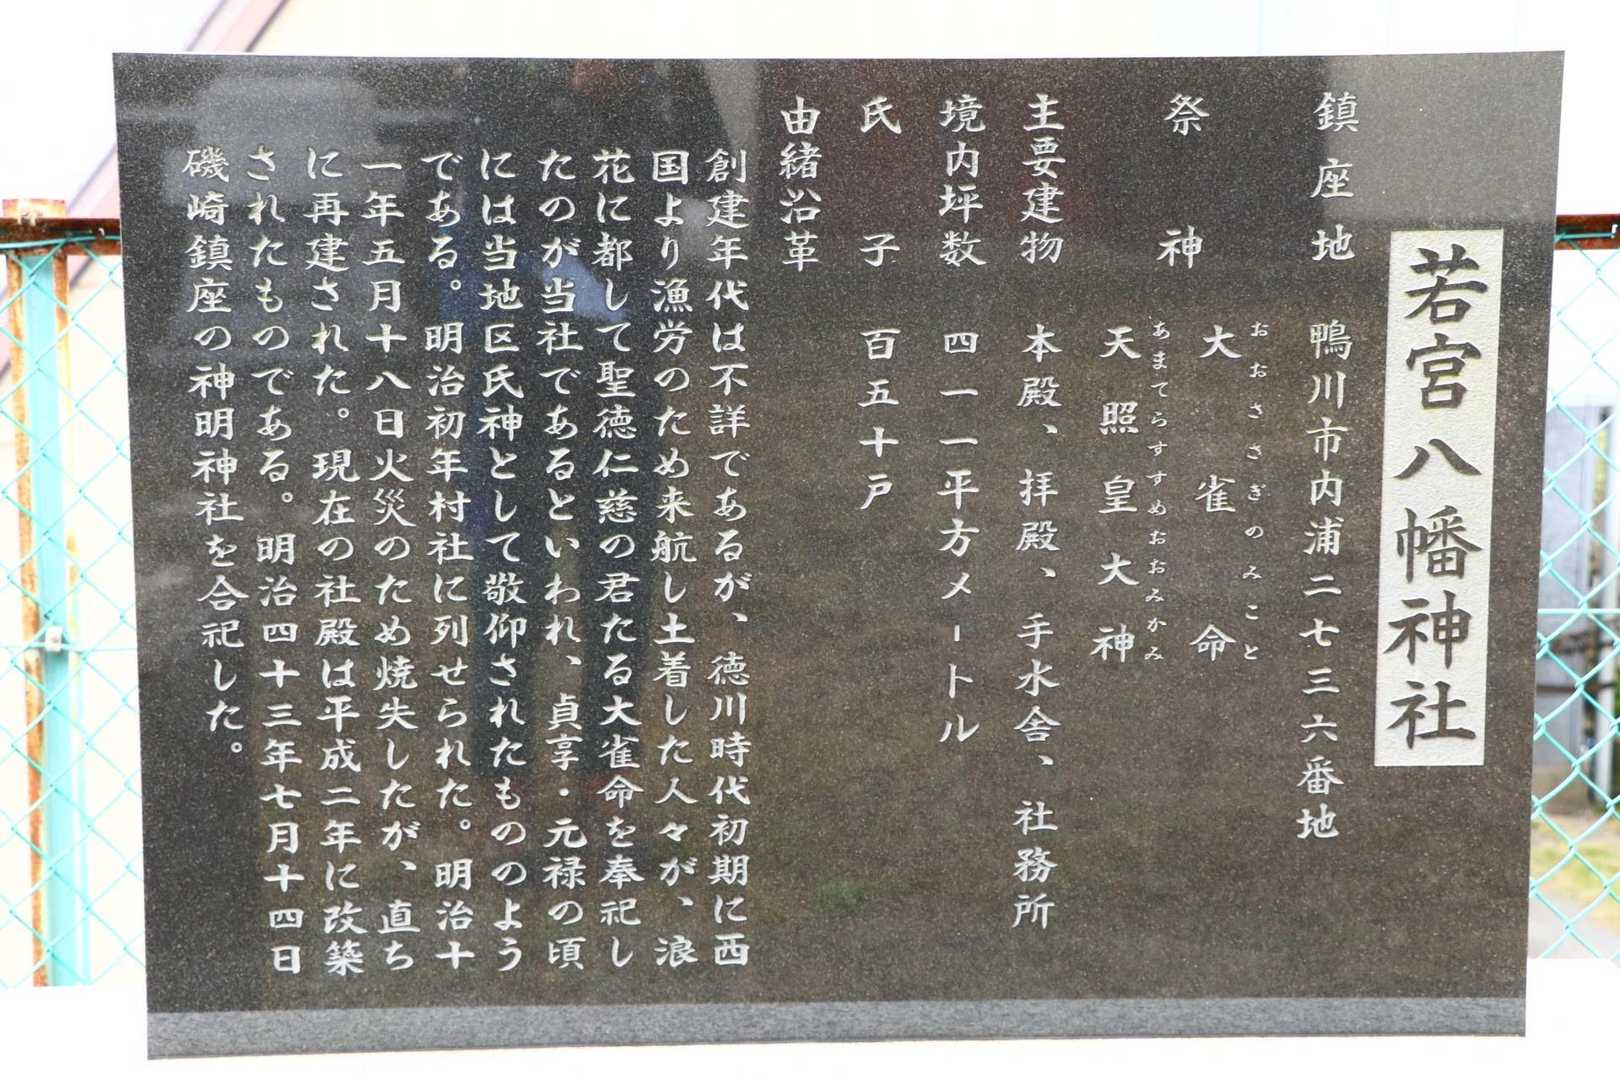 若宮八幡神社
鎮座地　鴨川市内浦二七三六番地
祭神　大雀命
おおささぎのみこと
天照皇大神
あまてらすすめおおみかみ
主要建物　本殿、拝殿、手水舎、社務所
境内坪数　四一一平方メートル
氏子　百五十戸
由緒沿革
創建年代は不詳であるが、徳川時代初期に西
国より漁労のため来航し土着した人々が、浪
花に都して聖徳仁慈の君たる大雀命を奉祀し
たのが当社であるといわれ、貞享・元禄の頃
には当地区氏神として敬仰されたもののよう
である。明治初年村社に列せられた。明治十
一年五月十八日火災のため焼失したが、直ち
に再建された。現在の社殿は平成二年に改築
されたものである。明治四十三年七月十四日
磯崎鎮座の神明神社を合祀した。